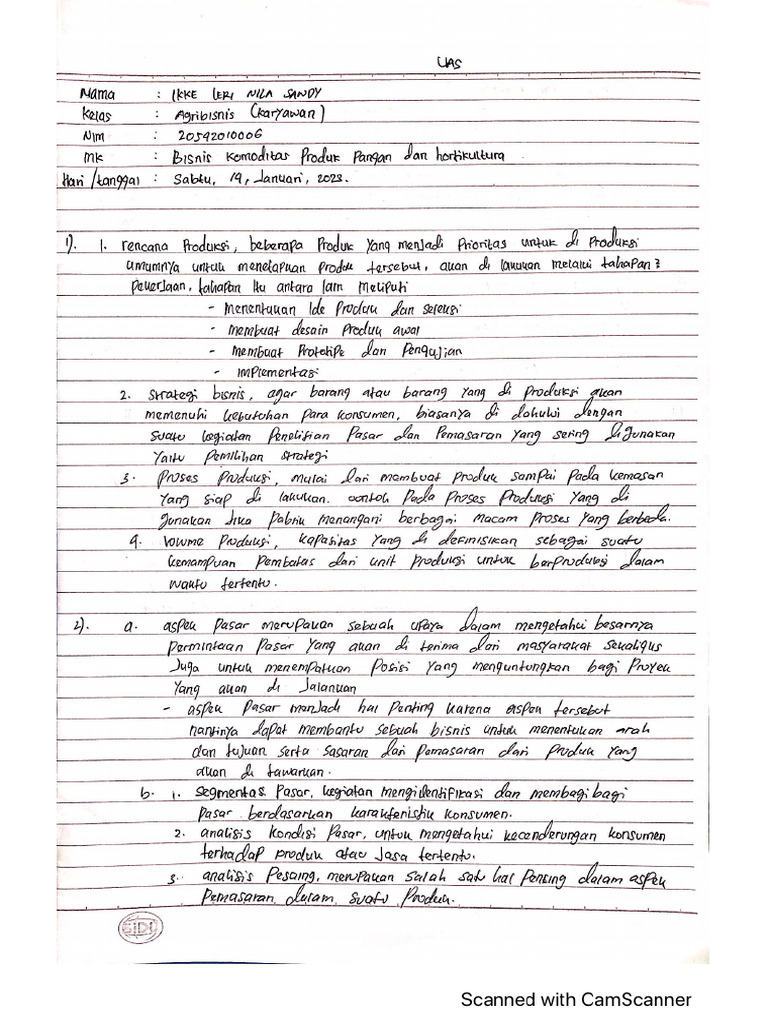 UAS
Nama : IKKE LERI NILA SANDY
Kelas : Agribisnis (Karyawan)
Nim : 20542010006
MK : Bisnis Komoditas Produk Pangan dan hortikultura
Hari/tanggal : Sabtu, 19, Januari, 2023.
1). 1. rencana Produksi, beberapa Produk yang menjadi Prioritas untuk di Produksi
umumnya untuk menetapkan produk tersebut, akan di lakukan melalui tahapan2
pekerjaan, tahapan itu antara lain meliputi
- menentukan Ide Produk dan seleksi
- membuat desain Produk awal
- membuat Prototipe dan Pengujian
- implementasi
2. strategi bisnis, agar barang atau barang yang di produksi akan
memenuhi kebutuhan para konsumen, biasanya di dahului dengan
suatu kegiatan Penelitian Pasar dan Pemasaran yang sering digunakan
yaitu Pemilihan strategi
3. Proses Produksi, mulai dari membuat produk sampai pada kemasan
yang siap di lakukan. contoh Pada Proses Produksi yang di
gunakan Jika Pabrik menangani berbagai macam proses yang berbeda.
4. volume Produksi, kapasitas yang di definisikan sebagai suatu
kemampuan Pembatas dari unit produksi untuk berproduksi dalam
waktu tertentu.
2). a. aspek Pasar merupakan sebuah upaya dalam mengetahui besarnya
permintaan Pasar yang akan di terima dari masyarakat sekaligus
Juga untuk menempatkan Posisi yang menguntungkan bagi Proyek
yang akan di Jalankan
- aspek Pasar menjadi hal Penting karena aspek tersebut
nantinya dapat membantu sebuah bisnis untuk menentukan arah
dan tujuan serta sasaran dari pemasaran dari Produk yang
akan di tawarkan.
b. 1. segmentas Pasar, kegiatan mengidentifikasi dan membagi bagi
pasar berdasarkan karakteristik konsumen.
2. analisis kondisi Pasar, untuk mengetahui kecenderungan konsumen
terhadap produk atau Jasa tertentu.
3. analisis Pesaing, merupakan salah satu hal Penting dalam aspek
Pemasaran dalam suatu Produk.
SIDU
Scanned with CamScanner